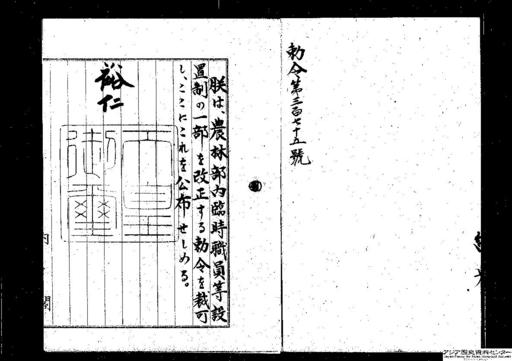 勅令第三百七十五號
朕は、農林部内臨時職員等設
置制の一部を改正する勅令を裁可
し、ここにこれを公布せしめる。
裕仁
天皇
御璽
内
閣
アジア歴史資料センター